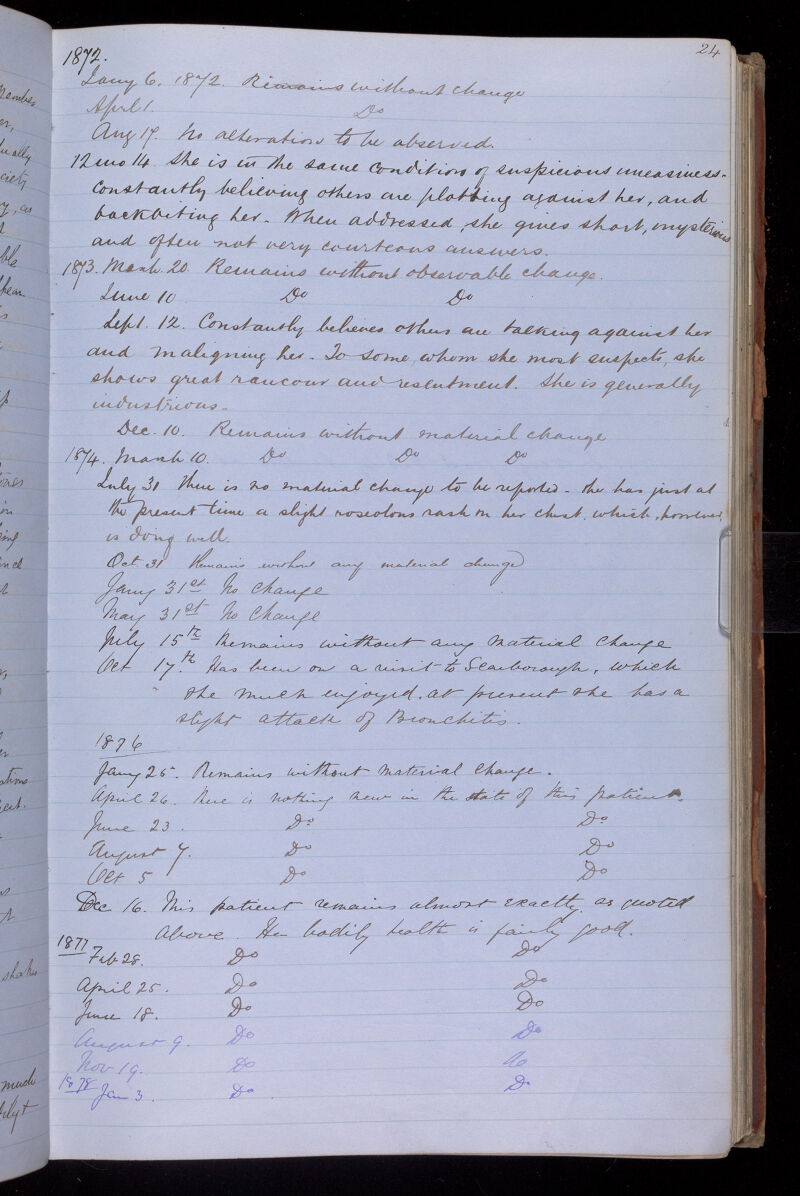 24
1872.
Jany 6. 1872. Remains without change
April 1. Do
Aug 17. No alteration to be observed.
12 mo 14. She is in the same condition of suspicious uneasiness -
constantly believing others are plotting against her, and
backbiting her. When addressed, she gives short, mysterious
and often not very courteous answers.
1873. March 20. Remains without observable change.
June 10 Do Do
Sept. 12. Constantly believes others are talking against her
and maligning her - To some, whom she most suspects, she
shows great rancour and resentment. She is generally
industrious.
Dec. 10. Remains without material change
1874. March 10. Do Do Do
July 31 There is no material change to be reported - She has just at
the present time a slight roseolous rash on her chest, which, however,
is doing well.
Oct 31 Remains without any material change
Jany 31st No Change
May 31st No Change
July 15th Remains without any material change
Oct 17th Has been on a visit to Scarborough, which
she much enjoyed. at present she has a
slight attack of Bronchitis.
1876
Jany 25. Remains without material change.
April 26. There is nothing new in the state of this patient.
June 23. Do Do
August 7. Do Do
Oct 5 Do Do
Dec 16. This patient remains almost exactly as quoted
above. Her bodily health is fairly good.
1877 Feb 28. Do Do
April 25. Do Do
June 18. Do Do
August 9. Do Do
Nov 19. Do Do
1878 Jan 3. Do Do